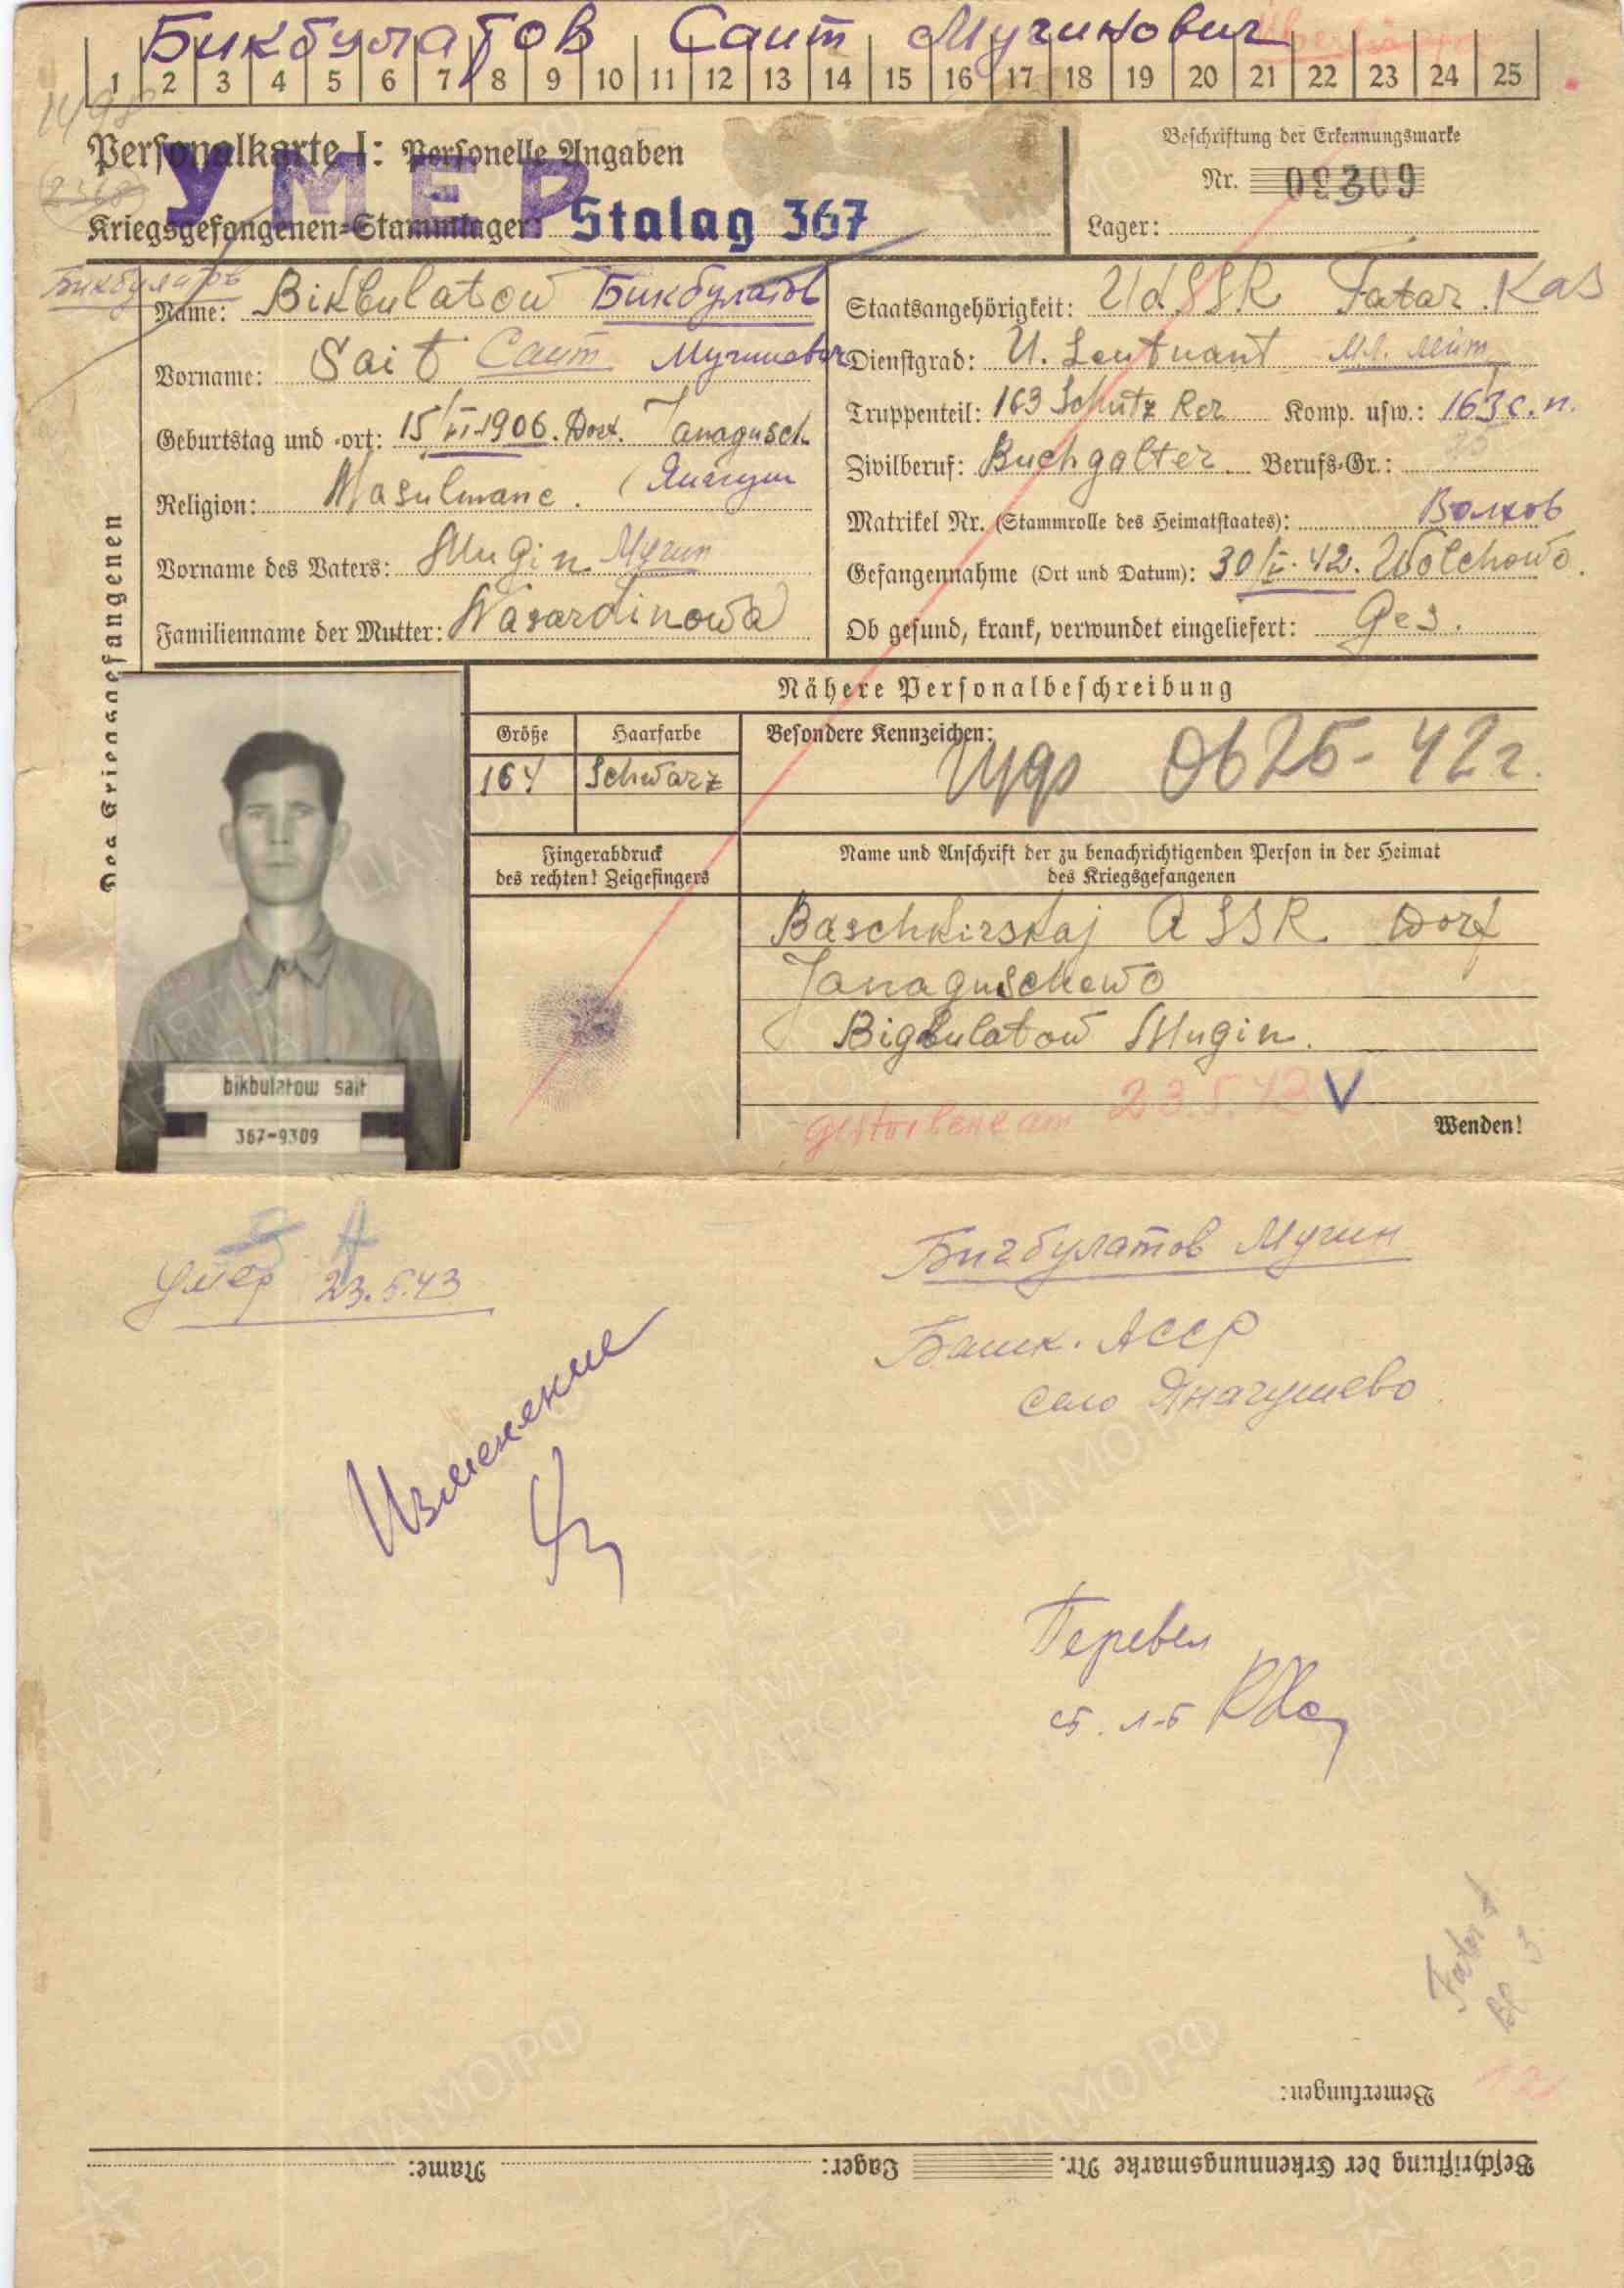 Бикбулатов Саит Мугинович
1 2 3 4 5 6 7 8 9 10 11 12 13 14 15 16 17 18 19 20 21 22 23 24 25
Personalkarte I: Personelle Angaben
УМЕР
Beschriftung der Erkennungsmarke
Nr. 09309
Kriegsgefangenen-Stammlager: Stalag 367
Lager:
Бикбулатов
Name: Bikbulatow Бикбулатов
Staatsangehörigkeit: UdSSR Tatar. Kas
Vorname: Sait Саит Мугинович
Dienstgrad: U. Leutnant Мл. лейт
Geburtstag und -ort: 15/VI-1906. Dorf. Janagusch
Truppenteil: 163 Schutz Rez Komp. usw.: 163 с.п.
Religion: Masulmane. (Янагуш
Zivilberuf: Buchgalter Berufs-Gr.: 25
Matrikel Nr. (Stammrolle des Heimatstaates): Волхов
Vorname des Vaters: Mugin Мугин
Gefangennahme (Ort und Datum): 30/V.42. Wolchowo.
Familienname der Mutter: Nasardinowa
Ob gesund, krank, verwundet eingeliefert: Ges.
Des Kriegsgefangenen
Nähere Personalbeschreibung
Größe Haarfarbe Besondere Kennzeichen:
164 Schwarz
0625-42г.
Fingerabdruck
des rechten! Zeigefingers
Name und Anschrift der zu benachrichtigenden Person in der Heimat
des Kriegsgefangenen
Baschkirskaj ASSR Dorf
Janaguschewo
Bigbulatow Mugin.
bikbulatow sait
367-9309
gestorbene am 23.5.43 V
Wenden!
A
Умер 23.5.43
Бигбулатов Мугин
Башк. АССР
село Янагушево
Изменение
Перевел
ст. л-т
Tatar
Bemerkungen:
Beschriftung der Erkennungsmarke Nr. Lager: Name:
ПАМЯТЬ НАРОДА
ЦАМО.РФ